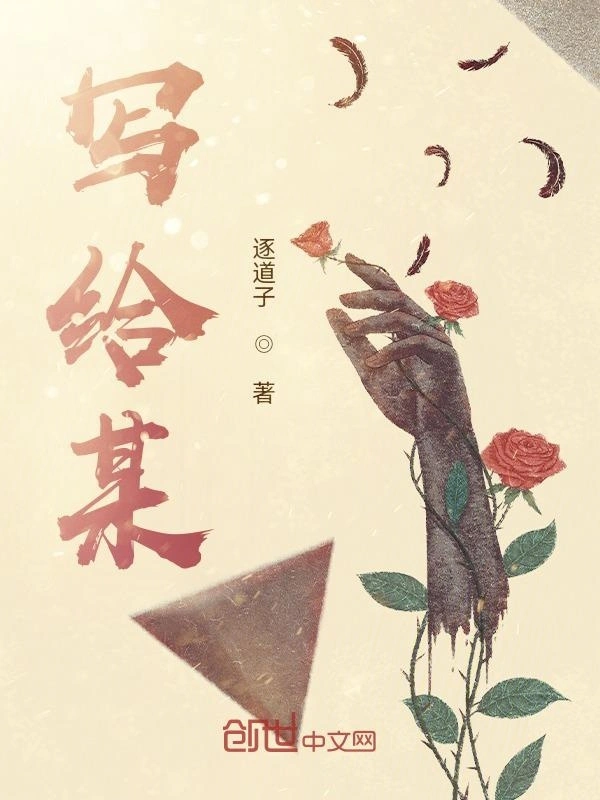 写给某
逐道子 ◎ 著
创世中文网